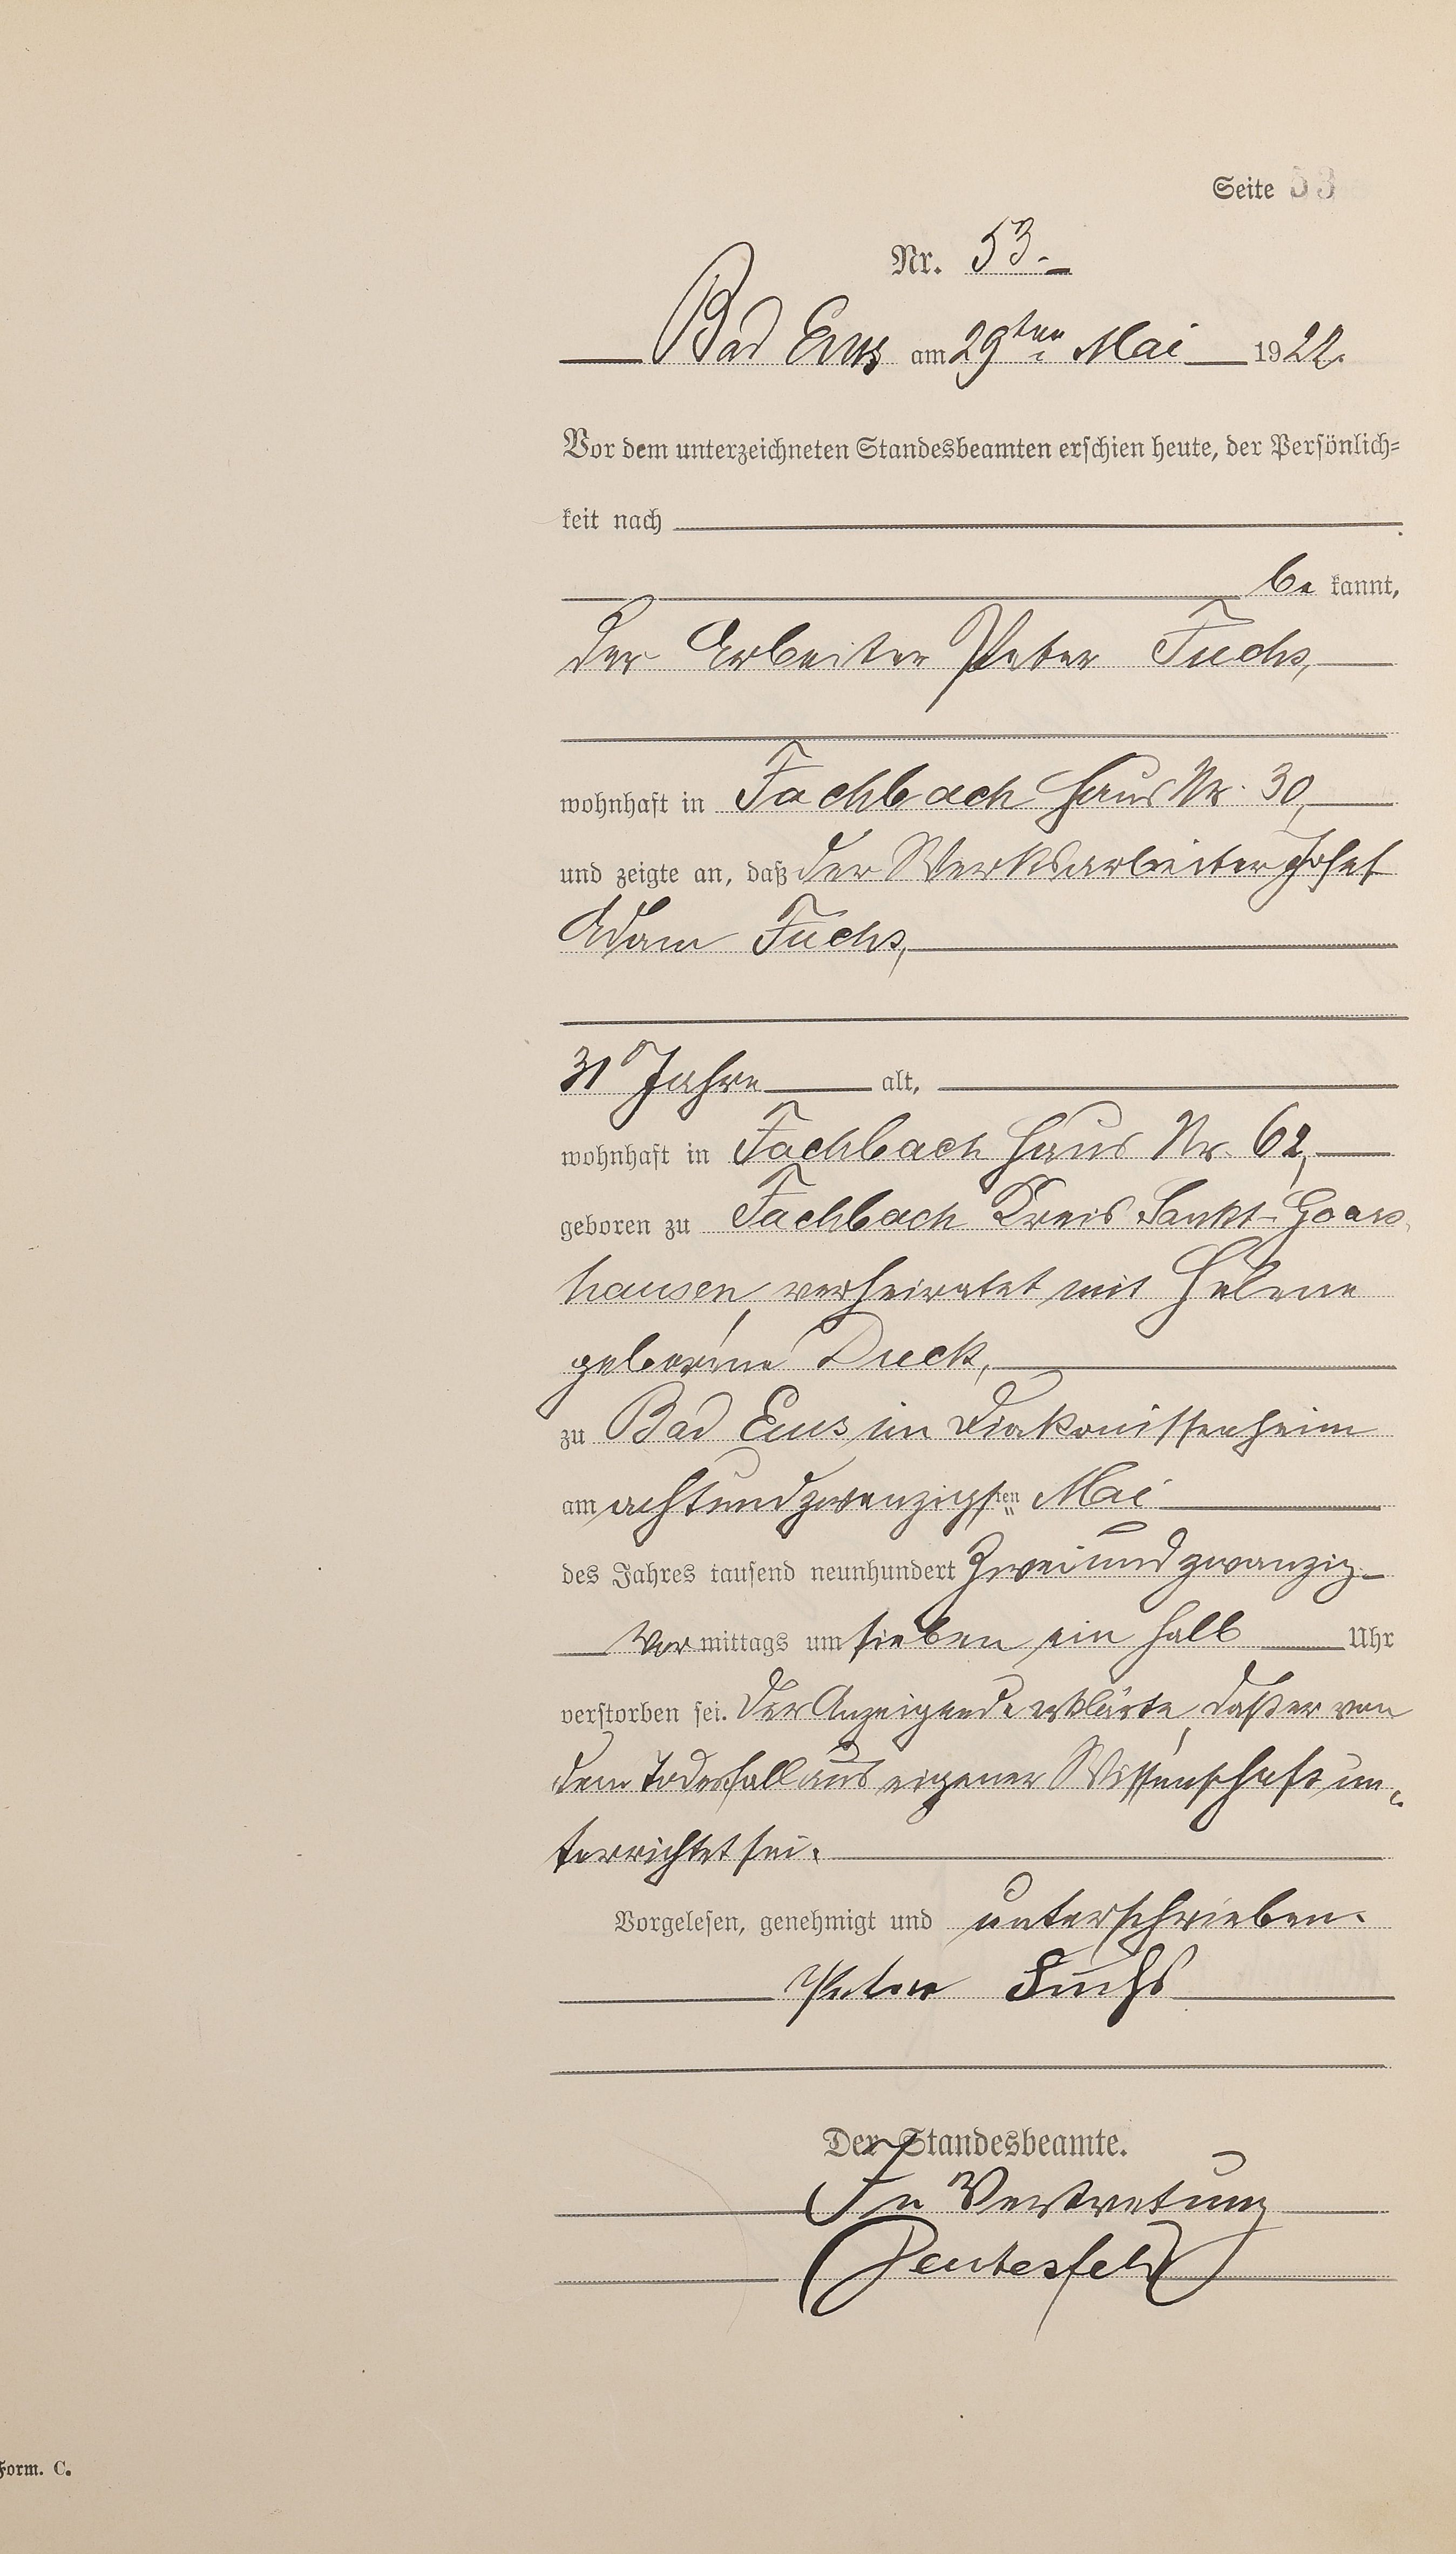 Seite 53
Nr. 53.
Bad Ems am 29ten Mai 1922.
Vor dem unterzeichneten Standesbeamten erschien heute, der Persönlich-
keit nach
be kannt,
der Arbeiter Peter Fuchs,
wohnhaft in Fachbach Haus Nr. 30,
und zeigte an, daß der Werksarbeiter Josef
Adam Fuchs,
31 Jahre alt,
wohnhaft in Fachbach Haus Nr. 62,
geboren zu Fachbach Kreis Sankt-Goars
hausen, verheiratet mit Helene
geborene Duck,
zu Bad Ems im Diakonissenheim
am achtundzwanzigsten Mai
des Jahres tausend neunhundert zweiundzwanzig
Vormittags um sieben ein halb Uhr
verstorben sei. Der Anzeigende erklärte, daß er von
dem Todesfall aus eigener Wissenschaft un-
terrichtet sei.
Vorgelesen, genehmigt und unterschrieben.
Peter Fuchs
Der Standesbeamte.
In Vertretung
Form. C.